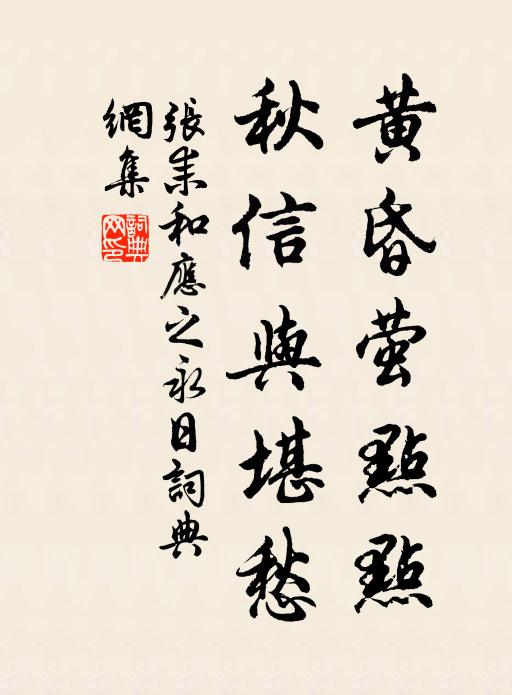 黄昏萤點點
秋信與堪愁
張耒和應之永日詞典
網集
詞典網印